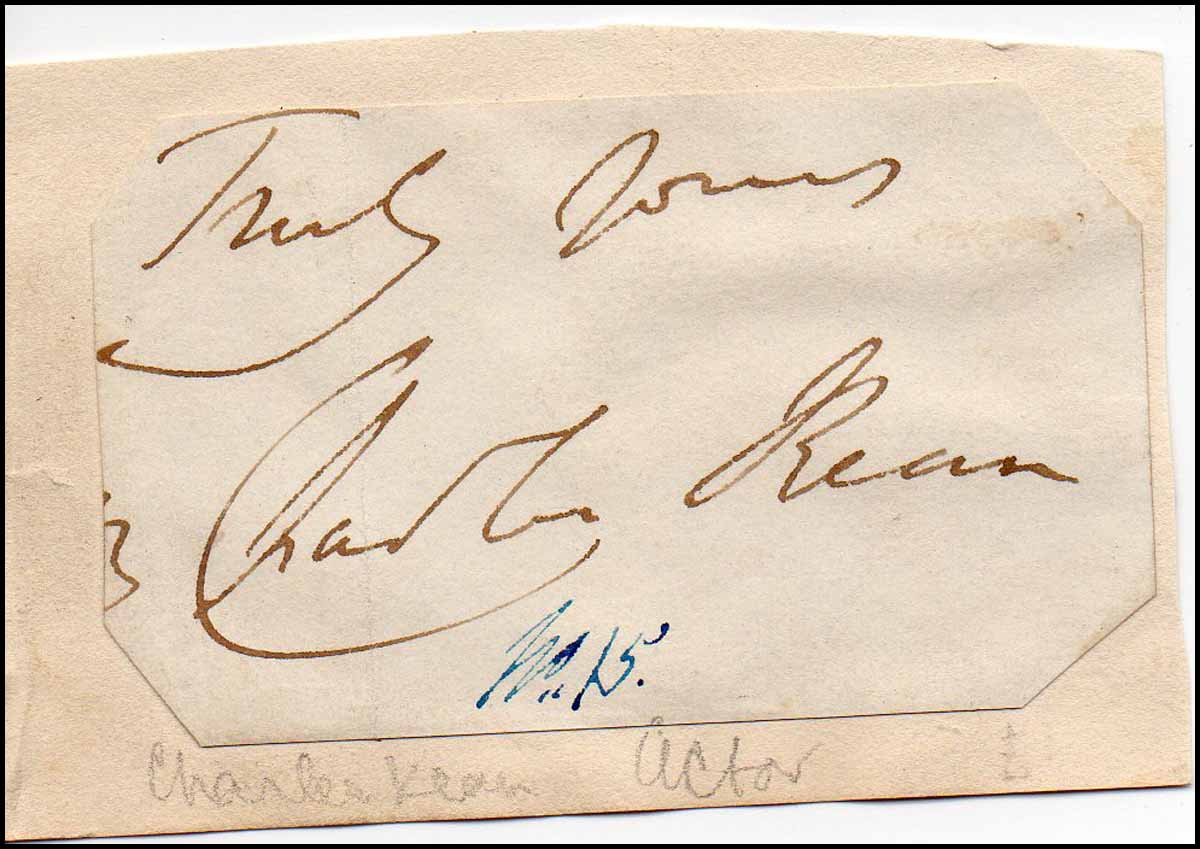 Truly Yours
Charles Kean
No. 15.
Charles Kean Actor